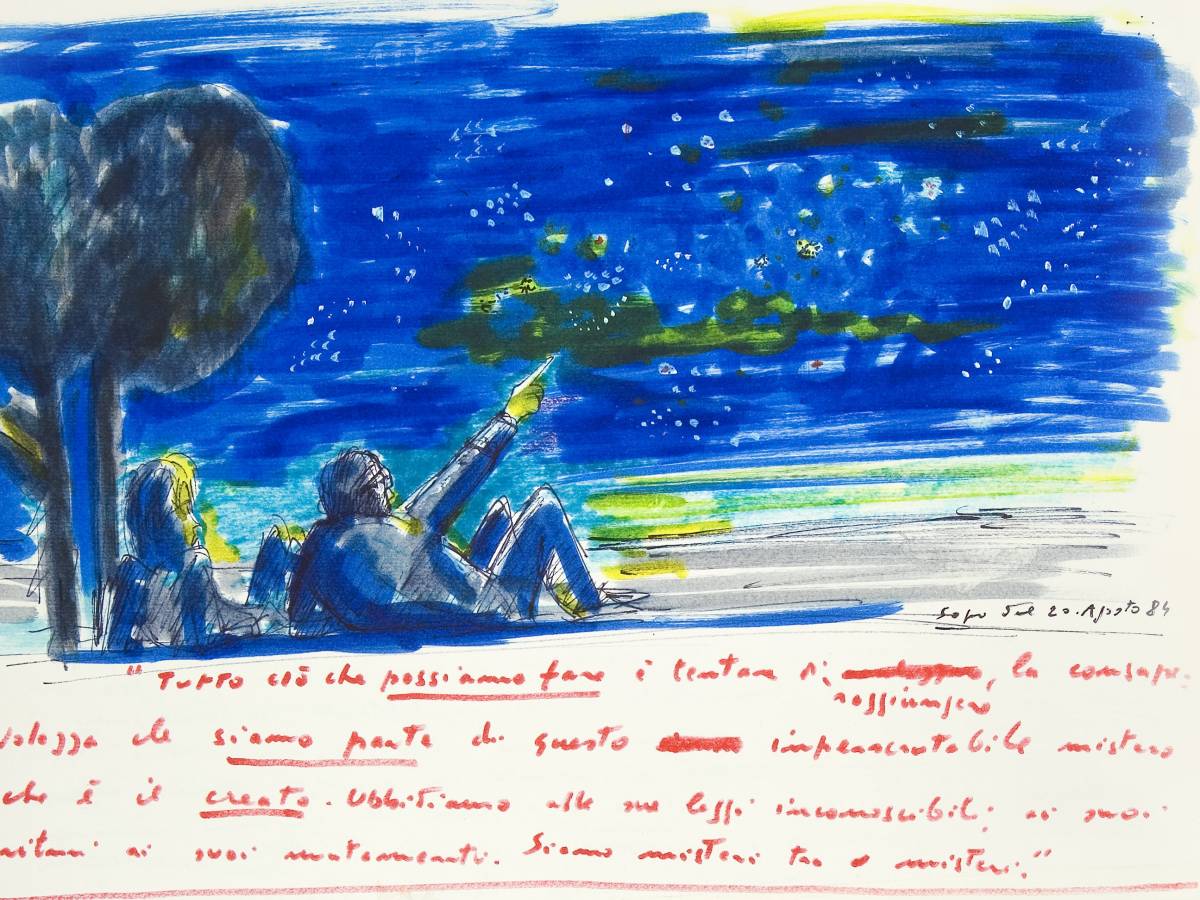 Sogno del 20. Agosto 84
"Tutto ciò che possiamo fare è tentare di, la consape-
raggiungere
volezza che siamo parte di questo impenscrutabile mistero
che è il creato. Ubbidiamo alle sue leggi inconoscibili, ai suoi
ritmi ai suoi mutamenti. Siamo misteri tra misteri."